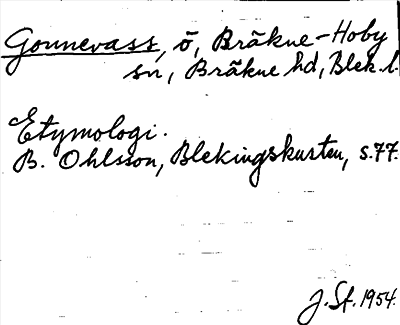 Gonnevass, ö, Bräkne-Hoby
sn, Bräkne hd, Blek. l.
Etymologi.
B. Ohlsson, Blekingskusten, s. 77.
J. St. 1954.